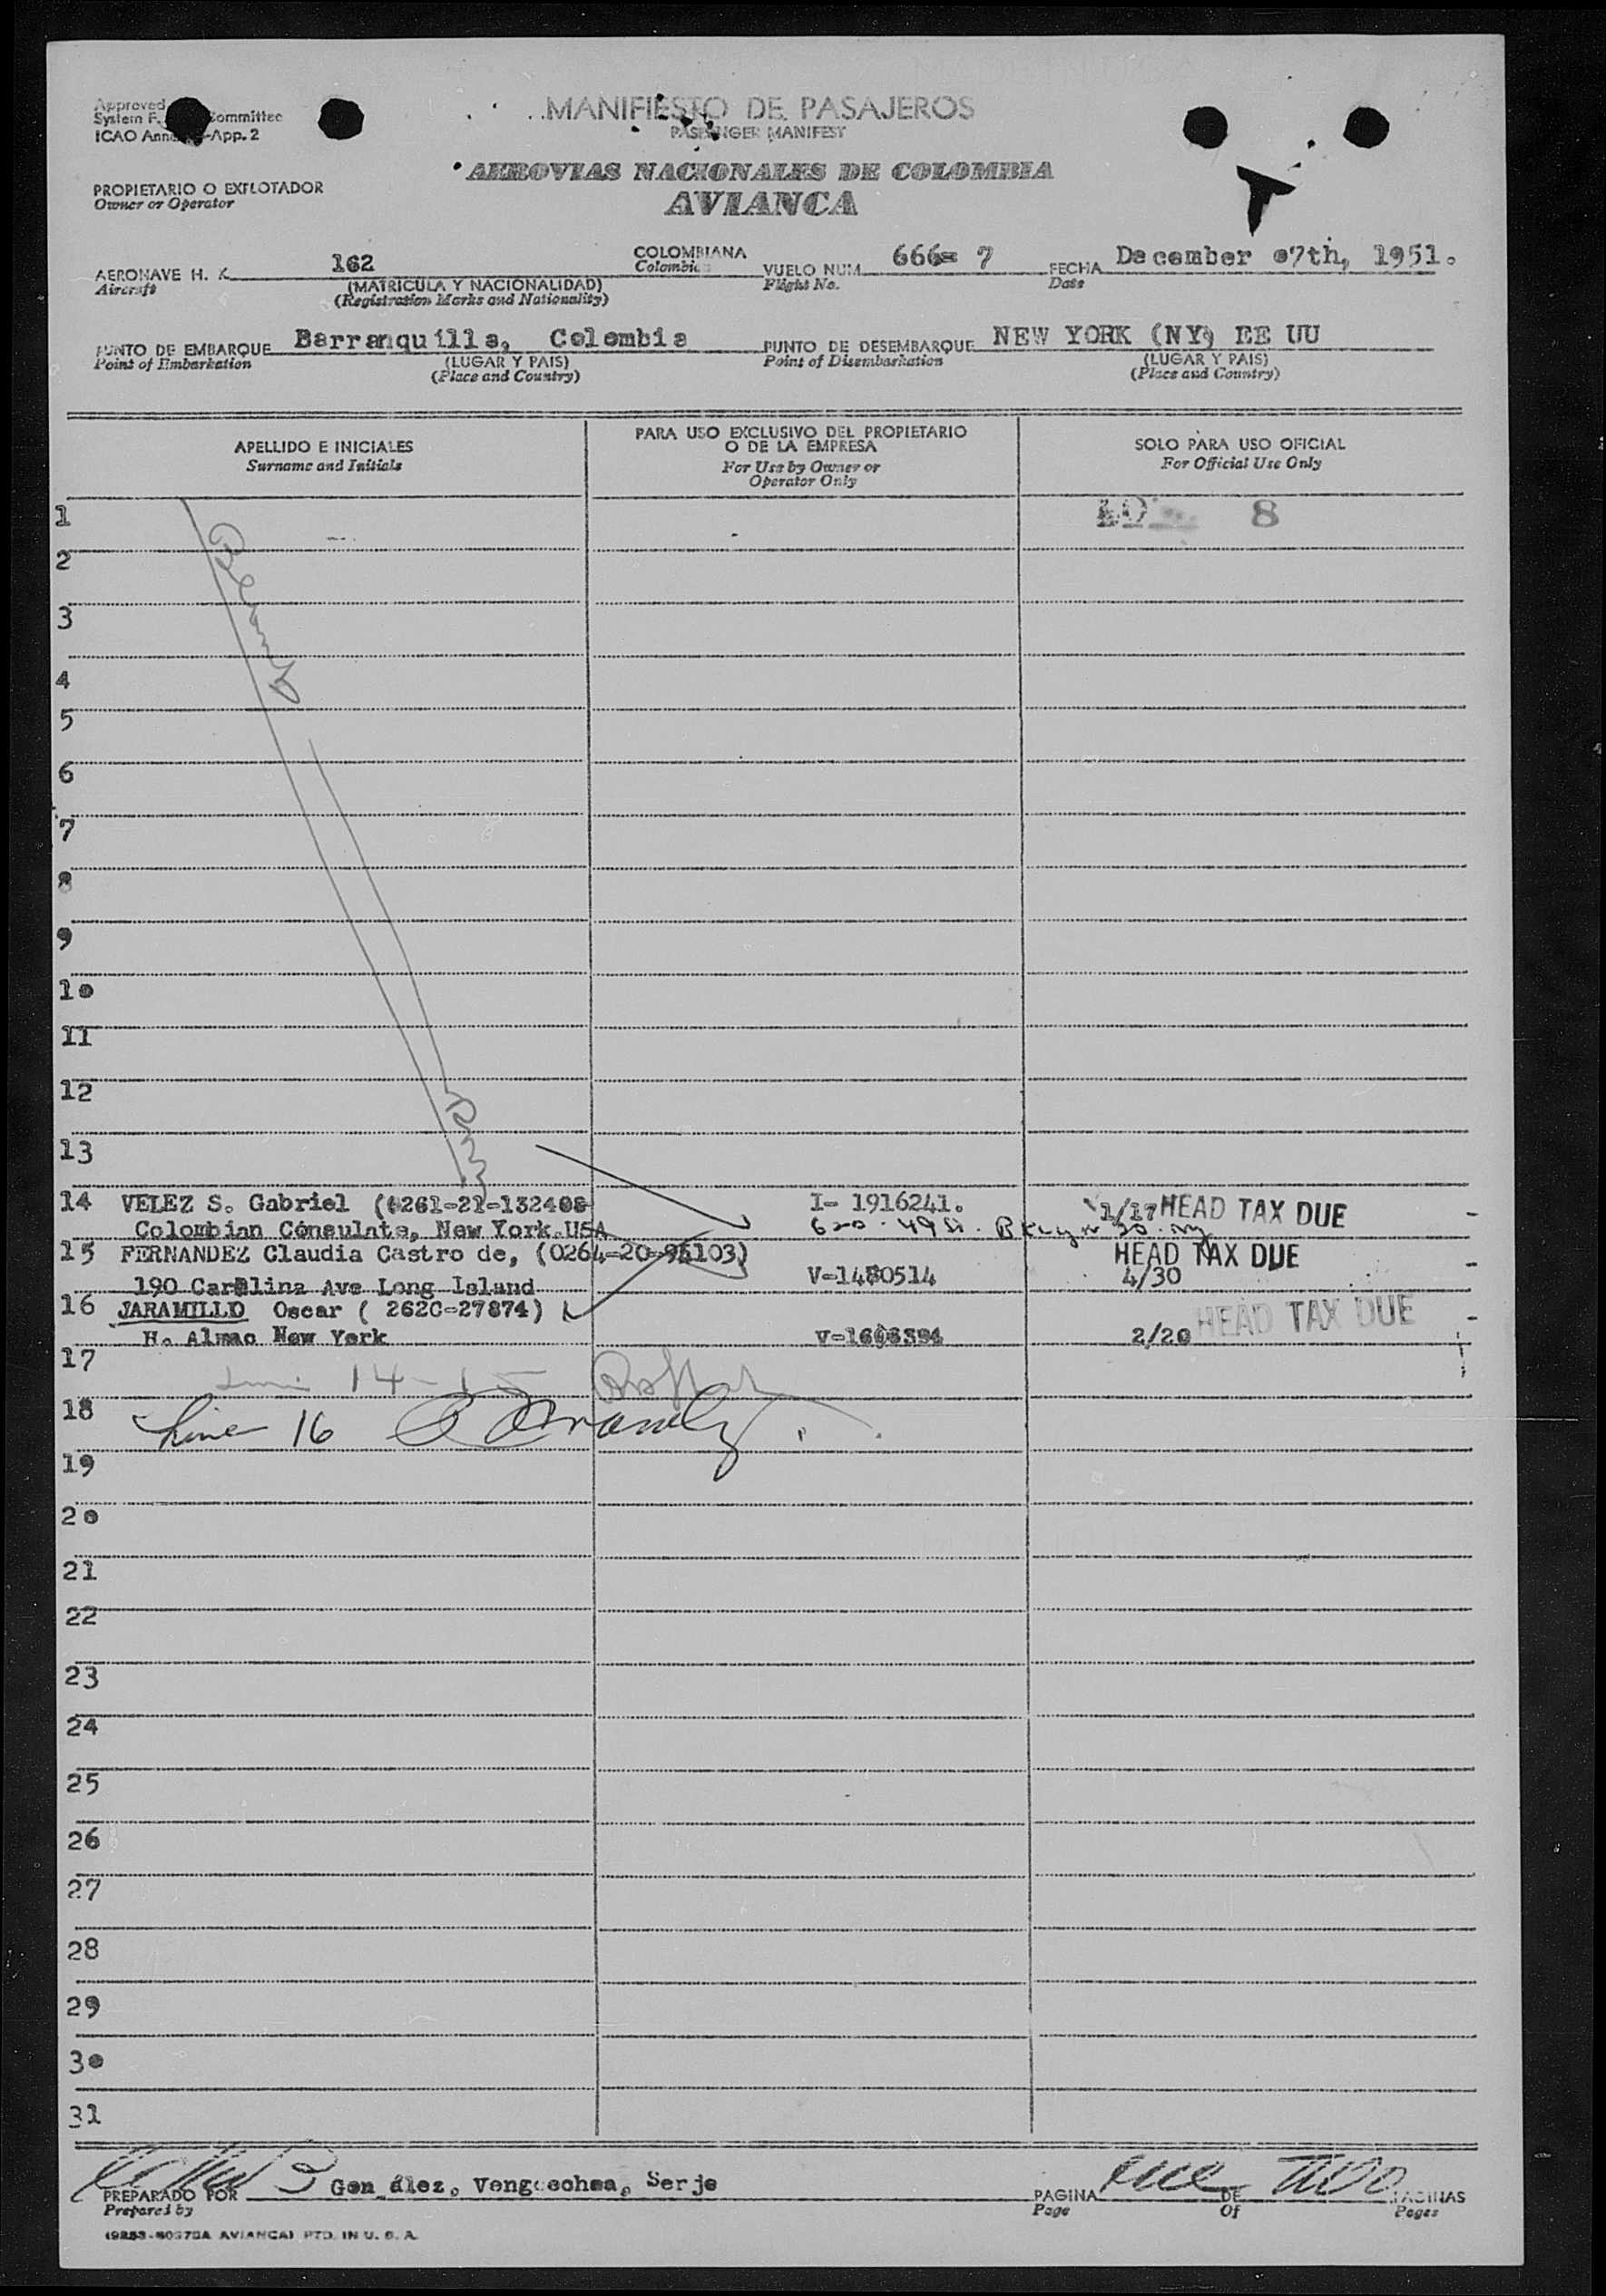 MANIFIESTO DE PASAJEROS
PASSENGER MANIFEST
Approved
System F. Committee
ICAO App. 2
AEROVIAS NACIONALES DE COLOMBIA
AVIANCA
PROPIETARIO O EXPLOTADOR
Owner or Operator
AERONAVE H. K. 162 COLOMBIANA VUELO NUM 666= 7 FECHA December 07th, 1951.
Aircraft (MATRICULA Y NACIONALIDAD) Colombian Flight No. Date
(Registration Marks and Nationality)
PUNTO DE EMBARQUE Barranquilla, Colombia PUNTO DE DESEMBARQUE NEW YORK (NY) EE UU
Point of Embarkation (LUGAR Y PAIS) Point of Disembarkation (LUGAR Y PAIS)
(Place and Country) (Place and Country)
APELLIDO E INICIALES PARA USO EXCLUSIVO DEL PROPIETARIO O DE LA EMPRESA SOLO PARA USO OFICIAL
Surname and Initials For Use by Owner or Operator Only For Official Use Only
1 8
2
3
4
5
6
7
8
9
10
11
12
13
14 VELEZ S. Gabriel I- 1916241. 1/17 HEAD TAX DUE
Colombian Consulate, New York.USA 620 . 49 St. Bklyn 20. NY
15 FERNANDEZ Claudia Castro de, (0264-20-96103) HEAD TAX DUE
190 Carolina Ave Long Island V-1480514 4/30
16 JARAMILLO Oscar ( 2620-27874) HEAD TAX DUE
H. Almac New York 2/20
17 14-15
18 Line 16
19
20
21
22
23
24
25
26
27
28
29
30
31
PREPARADO POR González, Vengoechea, Serje PAGINA DE PAGINAS
Prepared by Page Of Pages
AVIANCA) PTD. IN U. S. A.